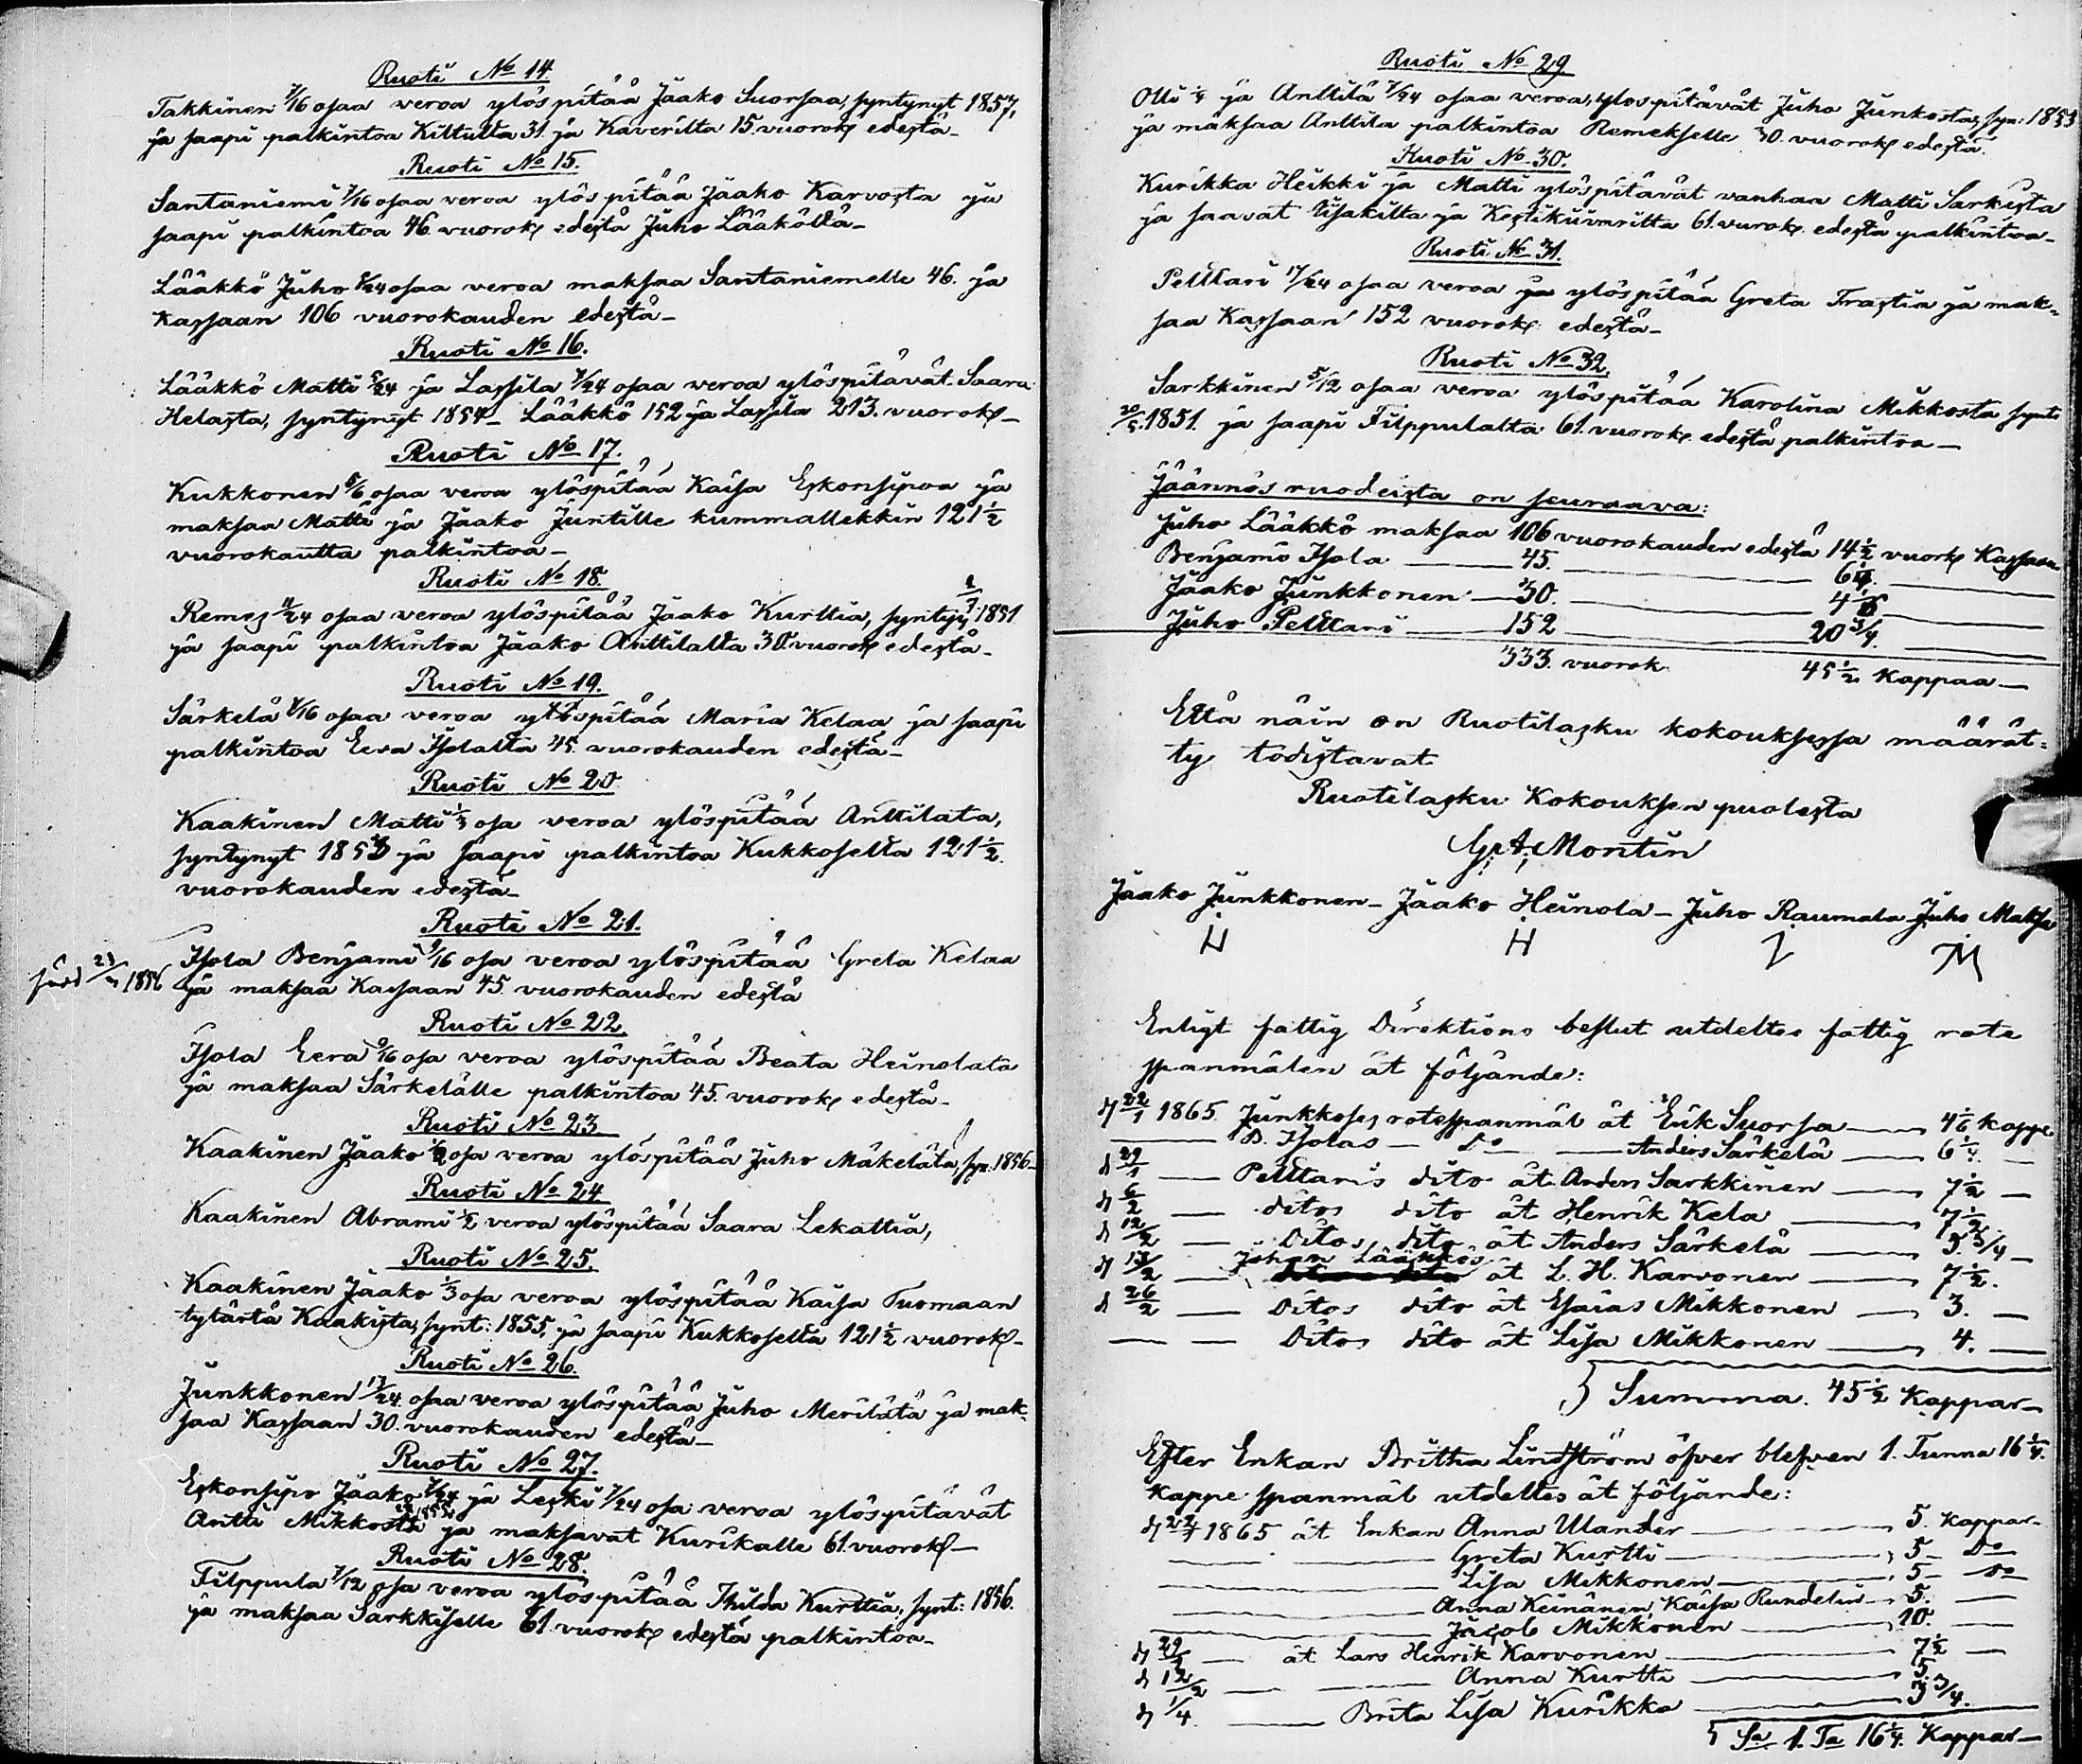 Ruoti No 14.
Takkinen 7/16 osaa veroa ylöspitää Jaako Suorsaa, syntynyt 1857,
ja saapi palkintoa Kiltulta 31. ja Kaverilta 15. vuorok edestä_
Ruoti No 15.
Santaniemi 7/16 osaa veroa ylöspitää Jaako Karvosta ja
saapi palkintoa 46. vuorok edestä Juho Lääköltä_
Lääkkö Juho 5/24 osaa veroa maksaa Santaniemelle 46. ja
Kassaan 106 vuorokauden edestä_
Ruoti No 16.
Lääkkö Matti 5/24 ja Lassila 7/24 osaa veroa ylöspitävät Saara
Helasta, syntynyt 1854_ Lääkkö 152 ja Lassila 213. vuorok_
Ruoti No 17.
Kukkonen 5/6 osaa veroa ylöspitää Kaisa Eskonsipoa ja
maksaa Matti ja Jaako Juntille kummallekkin 121½
vuorokautta palkintoa_
Ruoti No 18.
Remes 11/24 osaa veroa ylöspitää Jaako Kurttia, syntyy 1851
ja saapi palkintoa Jaako Anttilalta 30. vuorok edestä_
Ruoti No 19.
Särkelä 7/16 osaa veroa ylöspitää Maria Kelaa ja saapi
palkintoa Eeva Isolalta 45. vuorokauden edestä_
Ruoti No 20
Kaakinen Matti ⅓ osa veroa ylöspitää Anttilata,
syntynyt 1853 ja saapi palkintoa Kukkoselta 121½
vuorokauden edestä_
Ruoti No 21.
Isola Benjami 9/16 osa veroa ylöspitää Greta Kelaa
född 1856 ja maksaa Kassaan 45. vuorokauden edestä
Ruoti No 22.
Isola Eeva 9/16 osa veroa ylöspitää Beata Heinolata
ja maksaa Särkelälle palkintoa 45. vuorok edestä_
Ruoti No 23
Kaakinen Jaako ½ osa veroa ylöspitää Juho Mäkelätä, syn: 1856_
Ruoti No 24
Kaakinen Abrami ½ veroa ylöspitää Saara Lekattia,
Ruoti No 25.
Kaakinen Jaako ⅓ osa veroa ylöspitää Kaisa Tuomaan
tytärtä Kaakista, synt: 1855, ja saapi Kukkoselta 121½ vuorok_
Ruoti No 26.
Junkkonen 13/24 osaa veroa ylöspitää Juho Merilätä ja mak-
saa Kassaan 30. vuorokauden edestä_
Ruoti No 27.
Eskonsipo Jaako 7/24 ja Leski 7/24 osa veroa ylöspitävät
Antti Mikkosta ja maksavat Kurikalle 61. vuorok_
Ruoti No 28.
Filppula 7/12 osa veroa ylöspitää Thilda Kurttia, synt: 1856.
ja maksaa Sarkkiselle 61. vuorok edestä palkintoa_
Ruoti No 29.
Olli ¼ ja Anttila 7/24 osaa veroa, ylospitävät Juho Junkosta, syn: 1853
ja maksaa Anttila palkintoa Remekselle 30. vuorok edestä.
Ruoti No 30.
Kurikka Heikki ja Matti ylöspitävät vanhaa Matti Sarkista
ja saavat ja 61. vurok. edestä palkintoa_
Ruoti No 31.
Pelttari 17/24 osaa veroa ja ylöspitää Greta Trastia ja mak-
saa Kassaan 152 vuorok edestä_
Ruoti No 32.
Sarkkinen 5/12 osaa veroa ylöspitää Karolina Mikkosta synt:
20/5. 1851. ja saapi Filppulalta 61. vuorok edestä palkintoa_
Jäännös ruodeista on seuraava:
Juho Lääkkö maksaa 106 vuorokauden edestä 14½ vuork Kassaan
Benjami Isola 45. 6¼.
Jaako Junkkonen 30. 4
Juho Pelttari 152 20¾.
333. vuorok. 45½ Kappaa_
Että näin on Ruotilasku kokouksessa määrät=
ty todistavat
Ruotilasku Kokouksen puolesta
G. A. Montin
Jaako Junkkonen_ Jaako Heinola_ Juho Raumala Juho Maksa
Enligt fattig Direktions beslut utdeltes fattig rote
spanmålen åt följande:
d 22/1 1865. Junkkoses rotespanmål åt Erik Suorsa 4⅙ kappe
B. Isolas Do Anders Särkelä 6¼.
d 29/1 Pelttaris dito åt Anders Sarkkinen 7½
d 6/2 ditos dito åt Henrik Kela 7½
d 12/2 Ditos dito åt Anders Särkelä 3¾
d 13/2 Johan Lääkkös åt L. H. Karvonen 7½.
d 26/2 Ditos dito åt Esaias Mikkonen 3.
Ditos dito åt Lisa Mikkonen 4.
Summa. 45½ Kappar_
Efter Enkan Britha Lindström öfver blefven 1. Tunna 16¼.
Kappe spanmål utdeltes åt följande:
d 22/1 1865 åt Enkan Anna Ulander 5. kappar_
Greta Kurtti 5 Do
Lisa Mikkonen 5 Do
Anna Keinänen, Kaisa Rundelin 5.
Jacob Mikkonen 10.
d 29/2 åt Lars Henrik Karvonen 7½
d 12/2 Anna Kurtti 5.
d 1/4. Brita Lisa Kurikka 3¾.
Sa 1. Ta 16¼. Kappar_